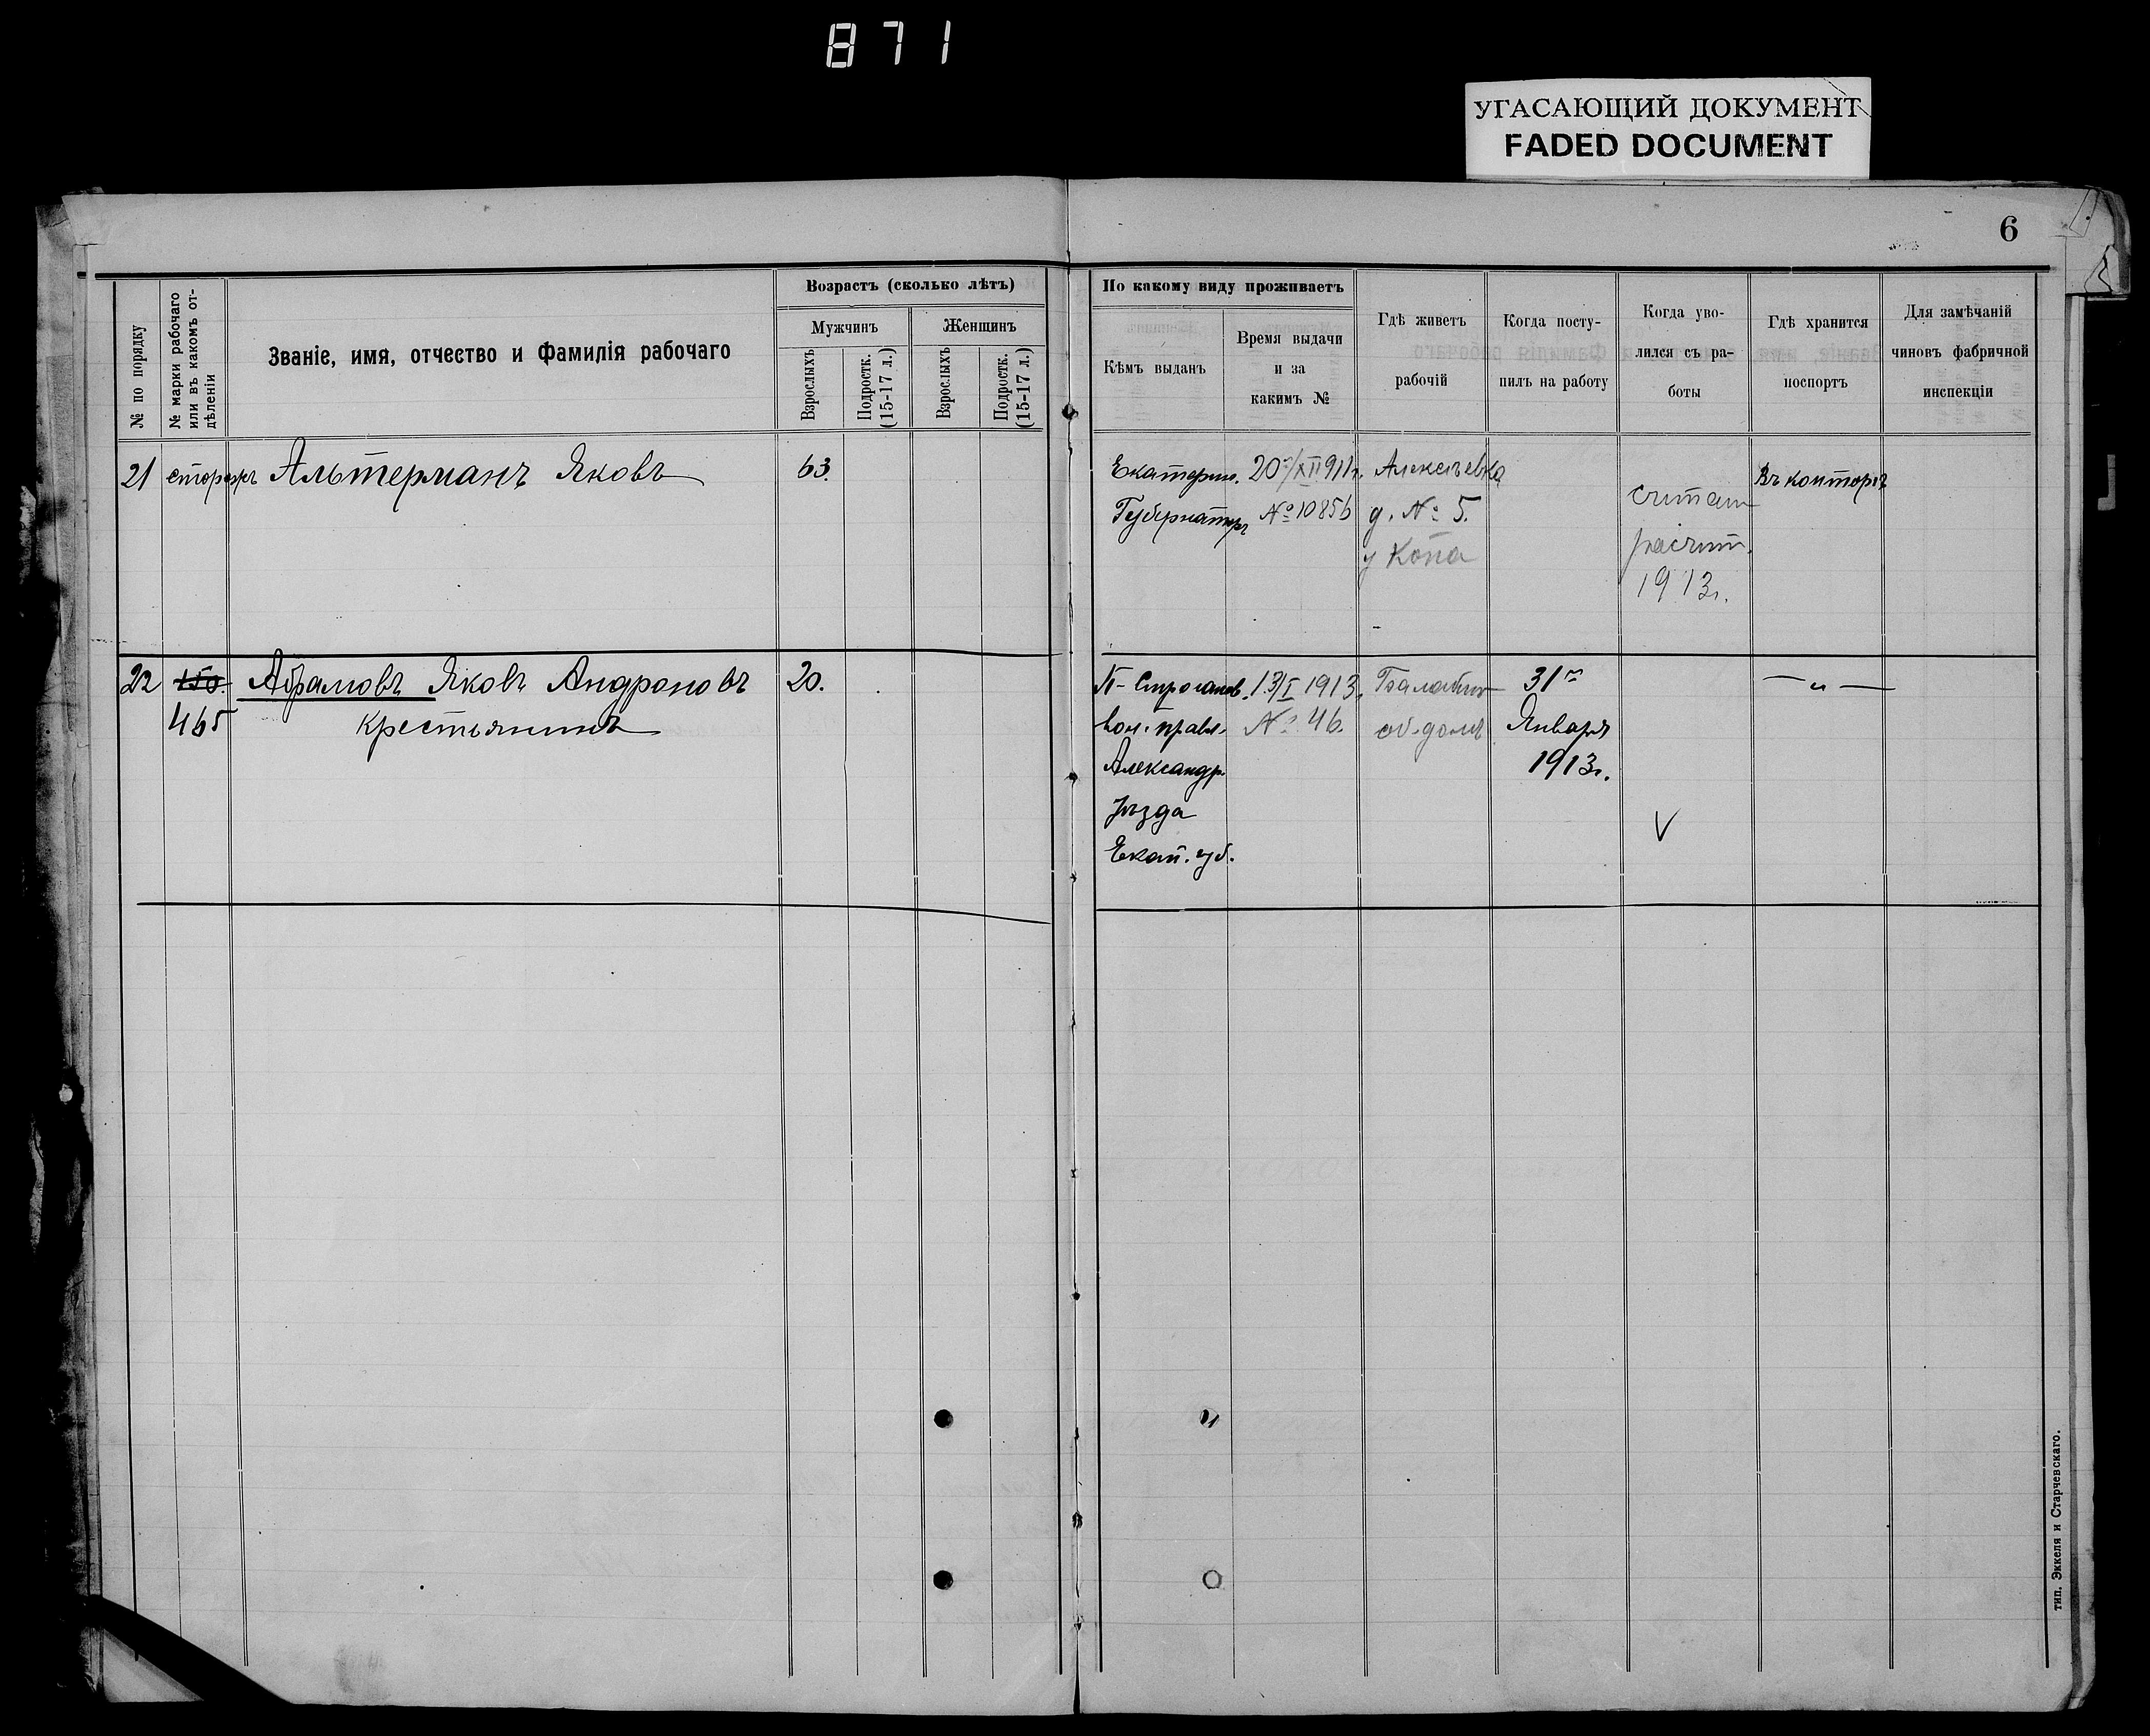 871
УГАСАЮЩИЙ ДОКУМЕНТ
FADED DOCUMENT
6
№ по порядку
№ марки рабочаго
или въ какомъ от-
дѣленіи
Званіе, имя, отчество и фамилія рабочаго
Возрастъ (сколько лѣтъ)
Мужчинъ
Женщинъ
Взрослыхъ
Подростк.
(15-17 л.)
Взрослыхъ
Подростк.
(15-17 л.)
По какому виду проживаетъ
Кѣмъ выданъ
Время выдачи
и за
какимъ №
Гдѣ живетъ
рабочій
Когда посту-
пилъ на работу
Когда уво-
лился съ ра-
боты
Гдѣ хранится
поспортъ
Для замѣчаній
чиновъ фабричной
инспекціи
21
сторожъ
Альтерманъ Яковъ
63.
Екатерин.
Губернатръ
20/XII 911г.
№ 10856
Алексѣевка
д. № 5.
у Копа
расчит.
1913г.
Въ конторѣ
22
150.
465
Абрамовъ Яковъ Андроновъ
крестьянинъ
20.
П-Строганов.
вол. правл.
Александр.
Уѣзда
Екат. губ.
13/I 1913.
№ 46.
об. домъ
31го
Января
1913г.
— " —
V
тип. Эккеля и Старчевскаго.